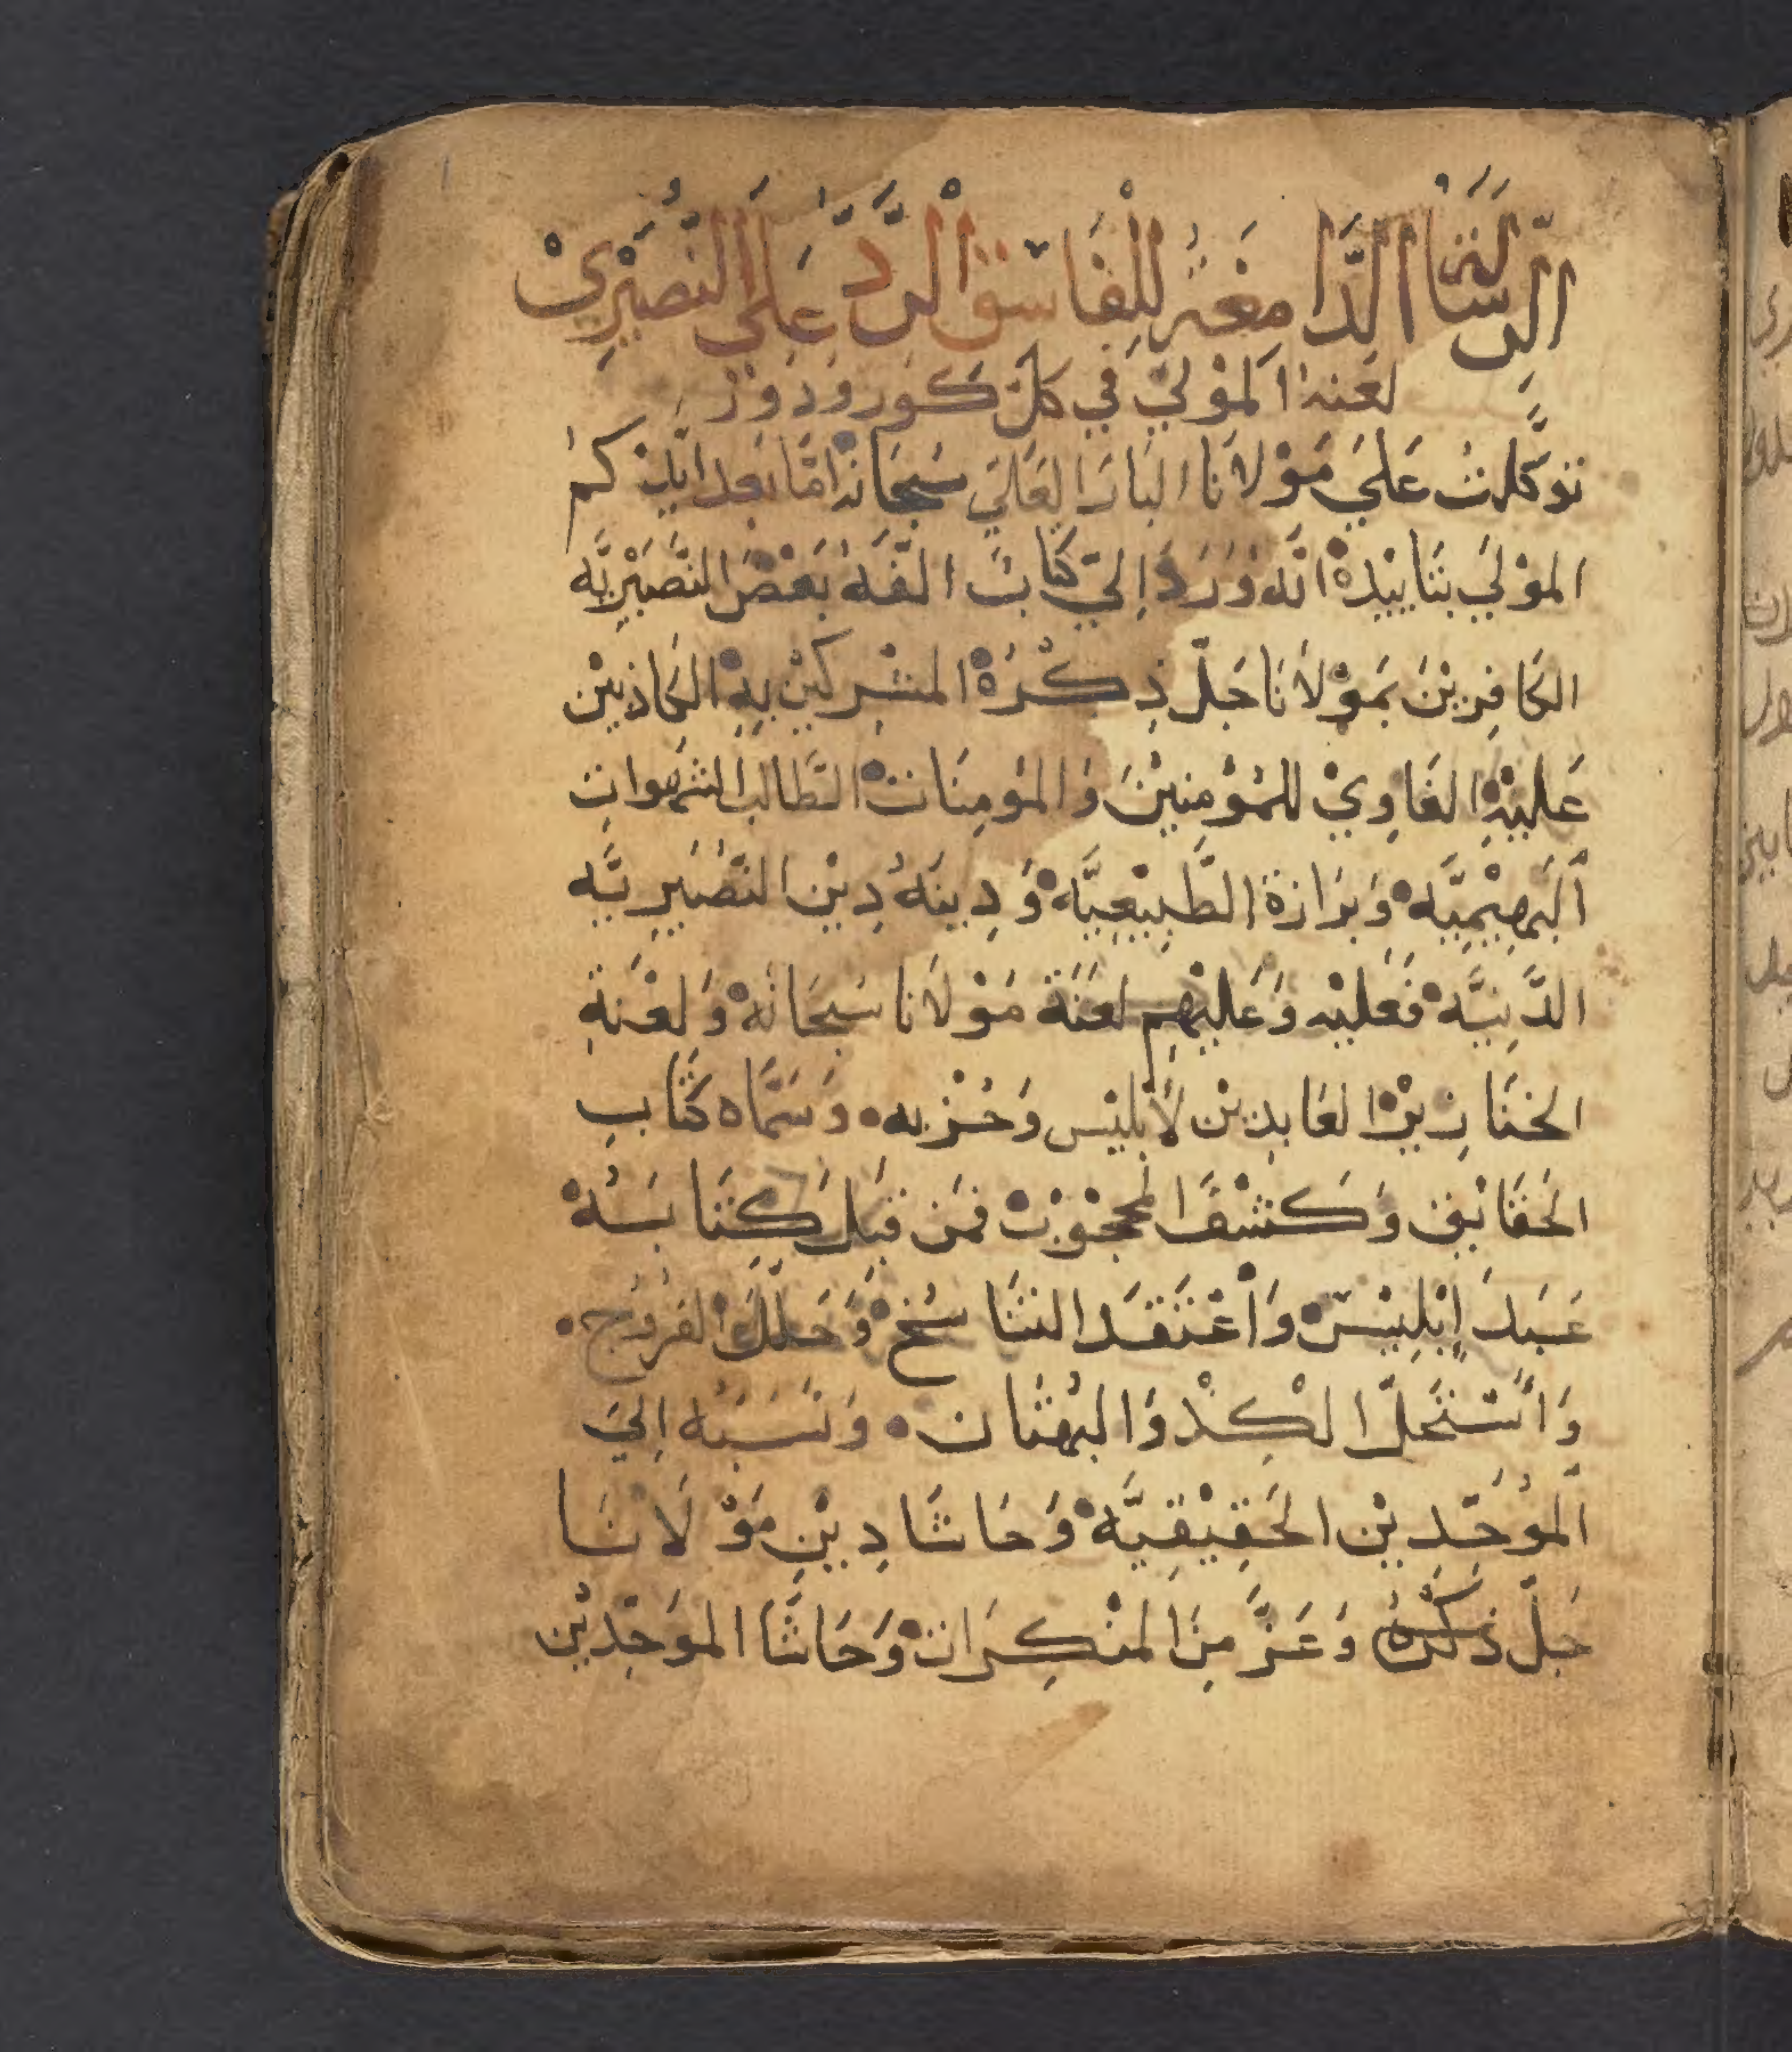 الرِّسَالَةُ الدَّامِغَةُ لِلْفَاسِقْ الْرَّدُّ عَلَىَ النُّصَيْرِيْ
لعنه المَوْليَ في كلّ كور ودَوْر
توَكلت عَليَ مَوْلانا البَار العَليَ سُبحَانهْ امّا بَعد ايّدَكمُ
الموْليَ بتَاييْدهْ انّه وَرَدَ اِليّ كتَابٌ الّفَهُ بَعْضُ النُّصَيْريَّه
الكَافِرِيْنَ بمَوْلاَنَا جَلّ ذِكْرُهْ المشْرِكيْن بِهِ الكَاذبيْن
عَليْهِ الغَاوِيْ للمُؤمِنِيْنَ وَالمُؤمِنَات الطَّالبَ الشّهَوات
اْلبَهِيْمِيَّه وَبرَازة الطَّبِيْعِيَّه وَدِينَهُ دِيْن النُّصَيرِيَّه
الدَّنِيَّه فَعَليْه وَعَليْهِم لعَنَة مَوْلاَنا سُبحَانَهْ وَلعْنَةِ
الخنَازِيرْ العَابدِين لأبْليْس وَحُزْبه • وَسَمَّاه كتَابِ
الحَقَايْق وَكَشْفَ المحجُوْبْ فمَن قبَل كِتَابَهُ
عَبَدَ إِبْلِيْسْ وَأعْتَقَد التنَاسُخ وَحَللَ الفُرُوْج •
وَاُسْتَحَلّ الكِذْ وَالبُهْتَان • وَنَسَبَه اِليَ
اْلمُوَحِّدِيْن الحَقِيْقِيَّه وَحَاشَا دِيْنِ مَوْلاَنَا
جَلّ ذِكْرُهُ وَعَزّ مِنَ المنْكِرَات وَحَاشَا الموَحِّدِيْن